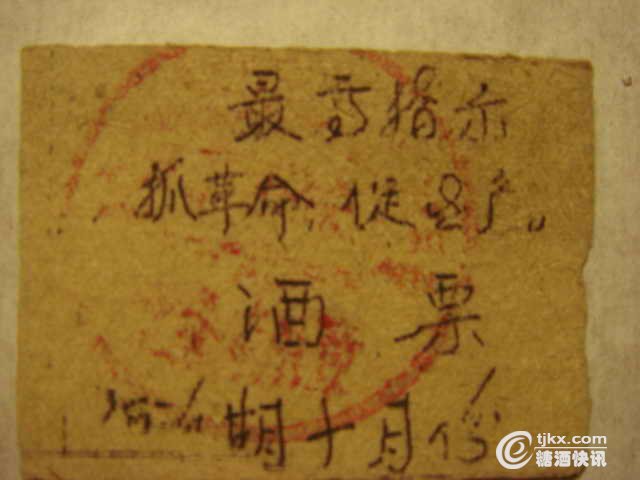 最高指示
抓革命,促生产。
酒 票
期十月份
tjkx.com
糖酒快讯